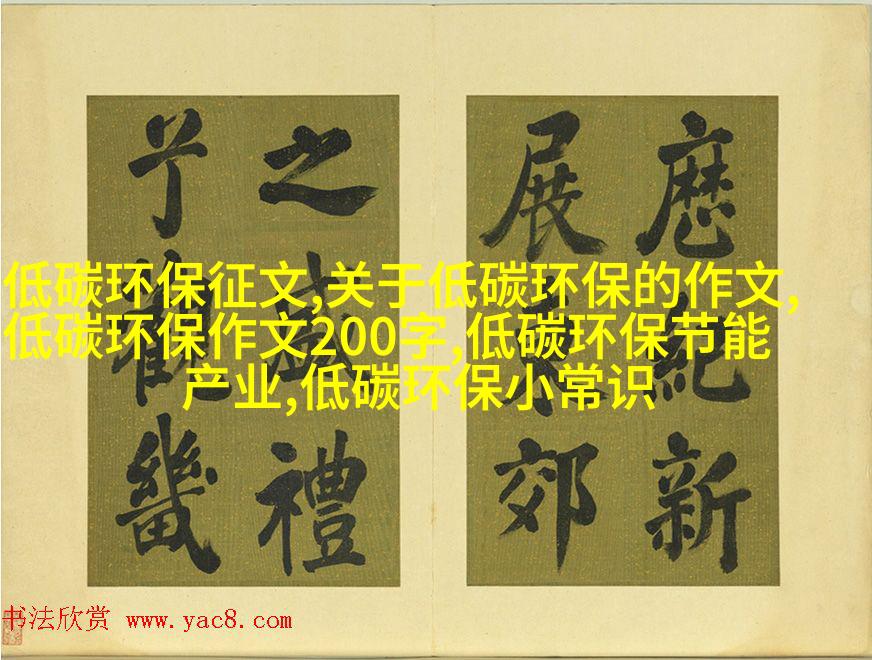 紀新
展郊
之盛禮
觀畿
低碳环保征文,关于低碳环保的作文,
低碳环保作文200字,低碳环保节能
产业,低碳环保小常识
书法欣赏 www.yac8.com